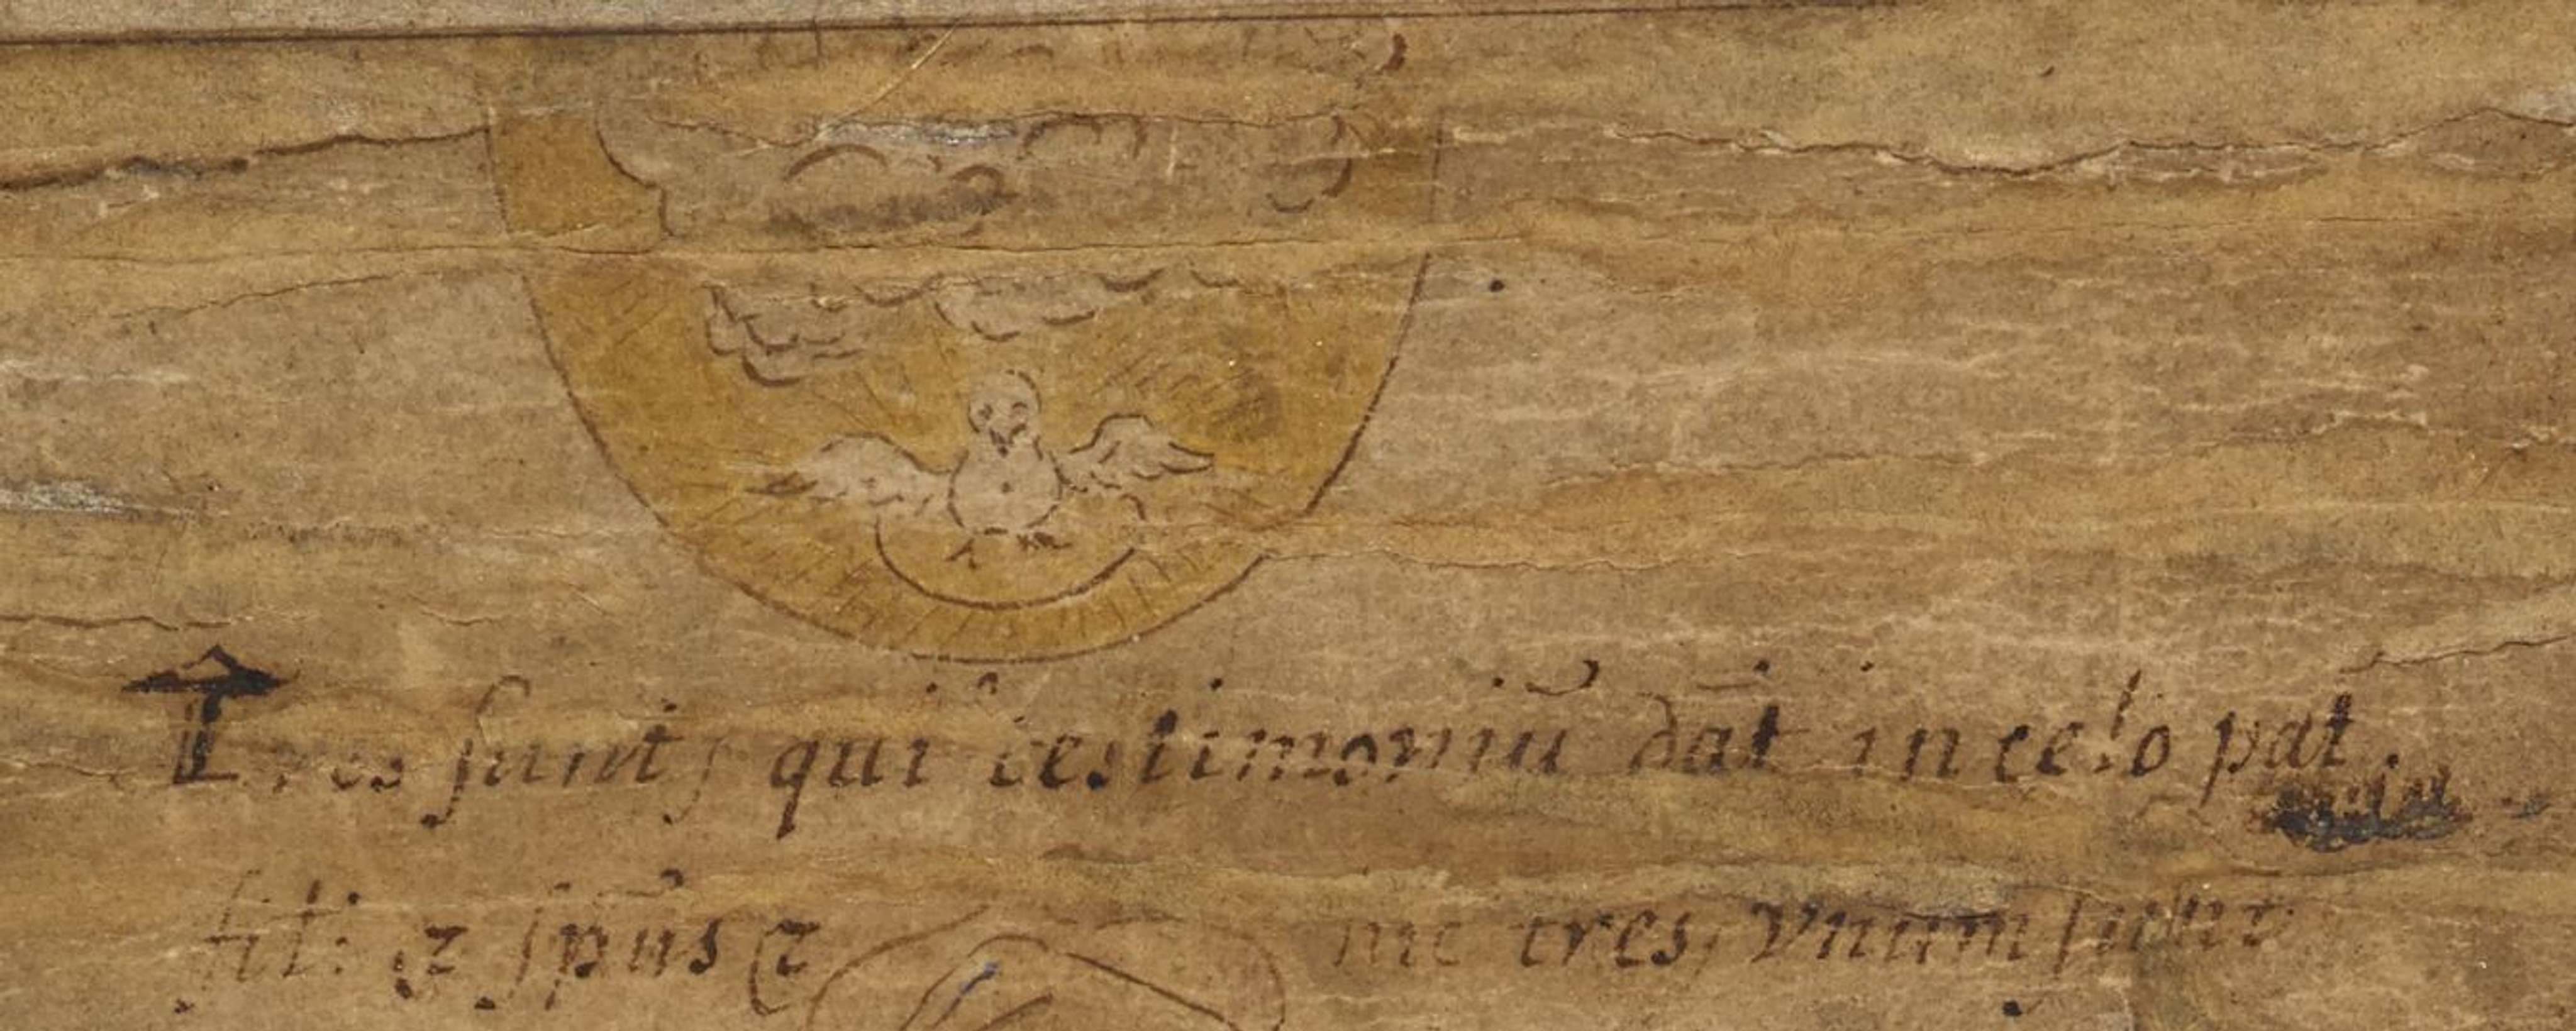 Tres sunt, qui testimoniū dāt in celo pat.
fili ⁊ spūs ⁊ me tres, Vnum sunt